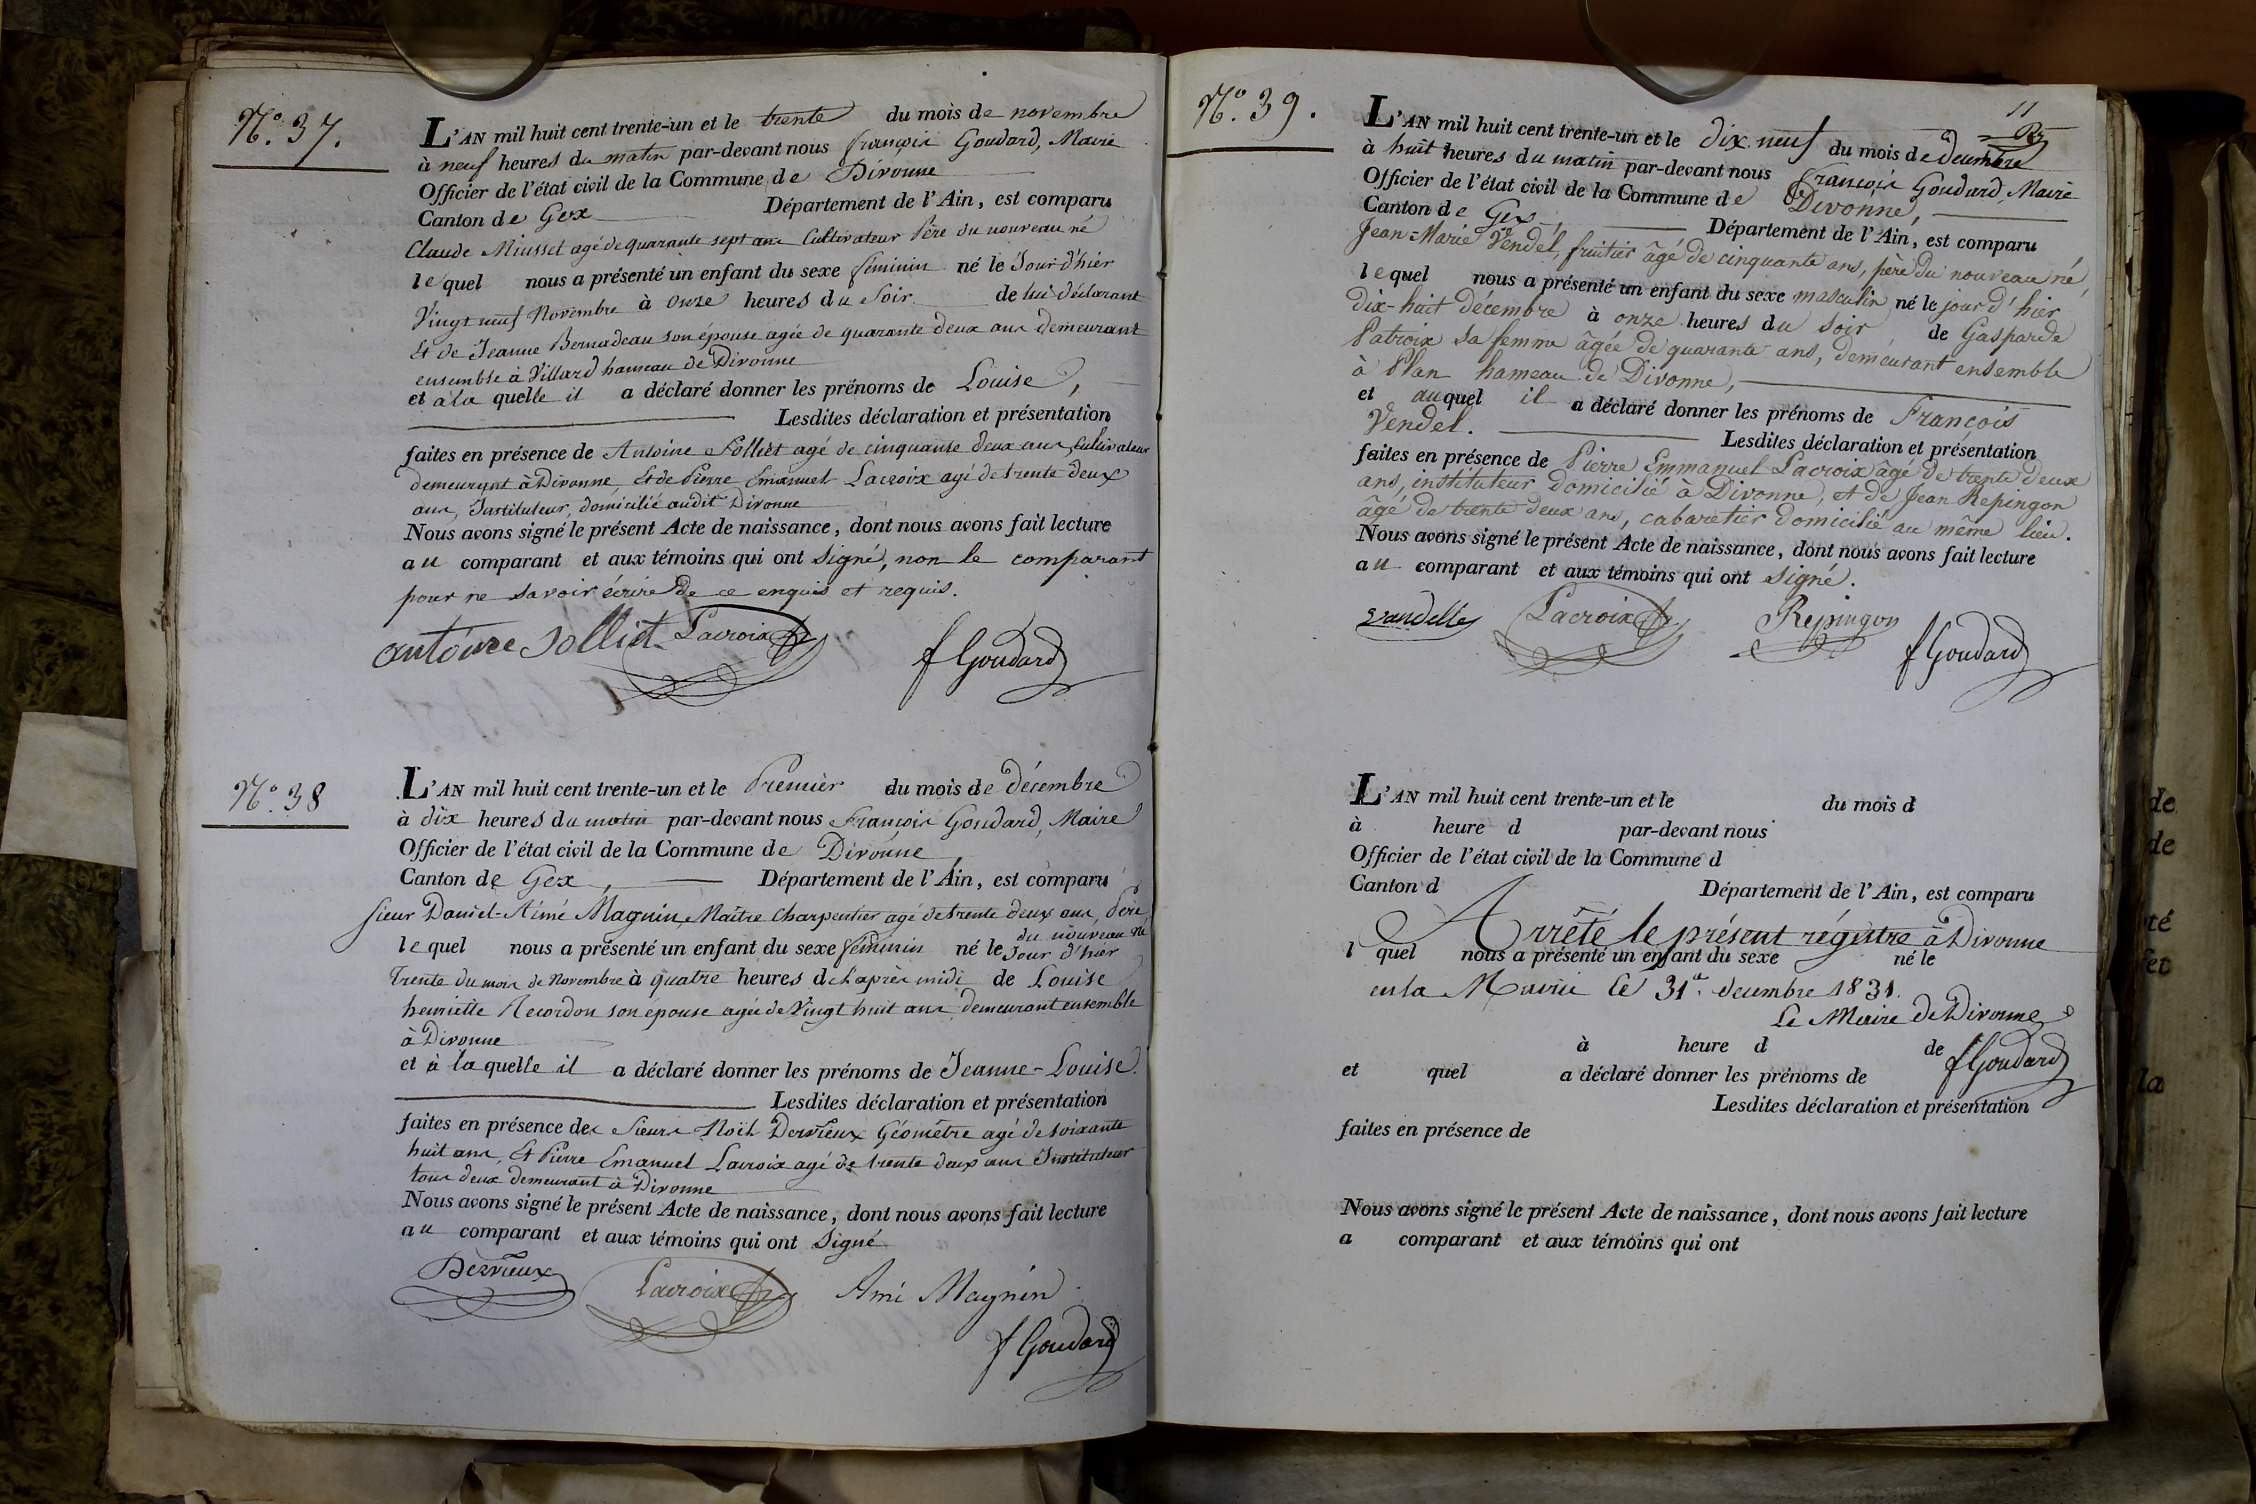 N.º 37.
L'AN mil huit cent trente-un et le trente du mois de novembre
à neuf heures du matin par-devant nous françois Goudard, Maire
Officier de l'état civil de la Commune de Divonne
Canton de Gex Département de l'Ain, est comparu
Claude Miusset agé de quarante sept ans Cultivateur Père du nouveau né
lequel nous a présenté un enfant du sexe féminin né le Jour d'hier
Vingt neuf Novembre à onze heures du Soir de lui déclarant
Et de Jeanne Bernadeau son épouse agée de quarante deux ans demeurant
ensemble à Villard hameau de Divonne
et à la quelle il a déclaré donner les prénoms de Louise,
Lesdites déclaration et présentation
faites en présence de Antoine Solliet agé de cinquante deux ans, Cultivateur
demeurant à Divonne, Et de Pierre Emanuel Lacroix agé de trente deux
ans, Instituteur, domicilié audit Divonne
Nous avons signé le présent Acte de naissance, dont nous avons fait lecture
au comparant et aux témoins qui ont signé, non le comparant
pour ne savoir écrire de ce enquis et requis.
antoine Solliet Lacroix f Goudard
N.º 38
L'AN mil huit cent trente-un et le Premier du mois de décembre
à dix heures du matin par-devant nous François Goudard, Maire
Officier de l'état civil de la Commune de Divonne
Canton de Gex, Département de l'Ain, est comparu
Sieur Daniel-Aimé Magnin, Maître Charpentier agé de trente deux ans, Père
du nouveau né
lequel nous a présenté un enfant du sexe féminin né le Jour d'hier
Trente du mois de Novembre à quatre heures de l'après midi de Louise
henriette Recordon son épouse agée de Vingt huit ans, demeurant ensemble
à Divonne
et à la quelle il a déclaré donner les prénoms de Jeanne-Louise.
Lesdites déclaration et présentation
faites en présence de Sieurs Noël Dervieux Géomètre agé de soixante
huit ans, Et Pierre Emanuel Lacroix agé de trente deux ans Instituteur
tous deux demeurant à Divonne
Nous avons signé le présent Acte de naissance, dont nous avons fait lecture
au comparant et aux témoins qui ont Signé
Dervieux Lacroix Ami Magnin
f Goudard
11
N.º 39.
L'AN mil huit cent trente-un et le dix neuf du mois de décembre
à huit heures du matin par-devant nous françois Goudard, Maire
Officier de l'état civil de la Commune de Divonne,
Canton de Gex Département de l'Ain, est comparu
Jean-Marie Vendel, fruitier âgé de cinquante ans, père du nouveau né,
lequel nous a présenté un enfant du sexe masculin né le jour d'hier
dix-huit décembre à onze heures du soir de Gasparde
Patroix sa femme âgée de quarante ans, demeurant ensemble
à Plan hameau de Divonne,
et auquel il a déclaré donner les prénoms de François
Vendel. Lesdites déclaration et présentation
faites en présence de Pierre Emmanuel Lacroix âgé de trente deux
ans, instituteur domicilié à Divonne, et de Jean Repingon
âgé de trente deux ans, cabaretier domicilié au même lieu.
Nous avons signé le présent Acte de naissance, dont nous avons fait lecture
au comparant et aux témoins qui ont signé.
Vandelle Lacroix Repingon f Goudard
L'AN mil huit cent trente-un et le du mois d
à heure d par-devant nous
Officier de l'état civil de la Commune d
Canton d Département de l'Ain, est comparu
Arrêté le présent régistre à Divonne
l quel nous a présenté un enfant du sexe né le
en la Mairie Le 31 decembre 1831.
Le Maire de Divonne
à heure d de f Goudard
et quel a déclaré donner les prénoms de
Lesdites déclaration et présentation
faites en présence de
Nous avons signé le présent Acte de naissance, dont nous avons fait lecture
a comparant et aux témoins qui ont